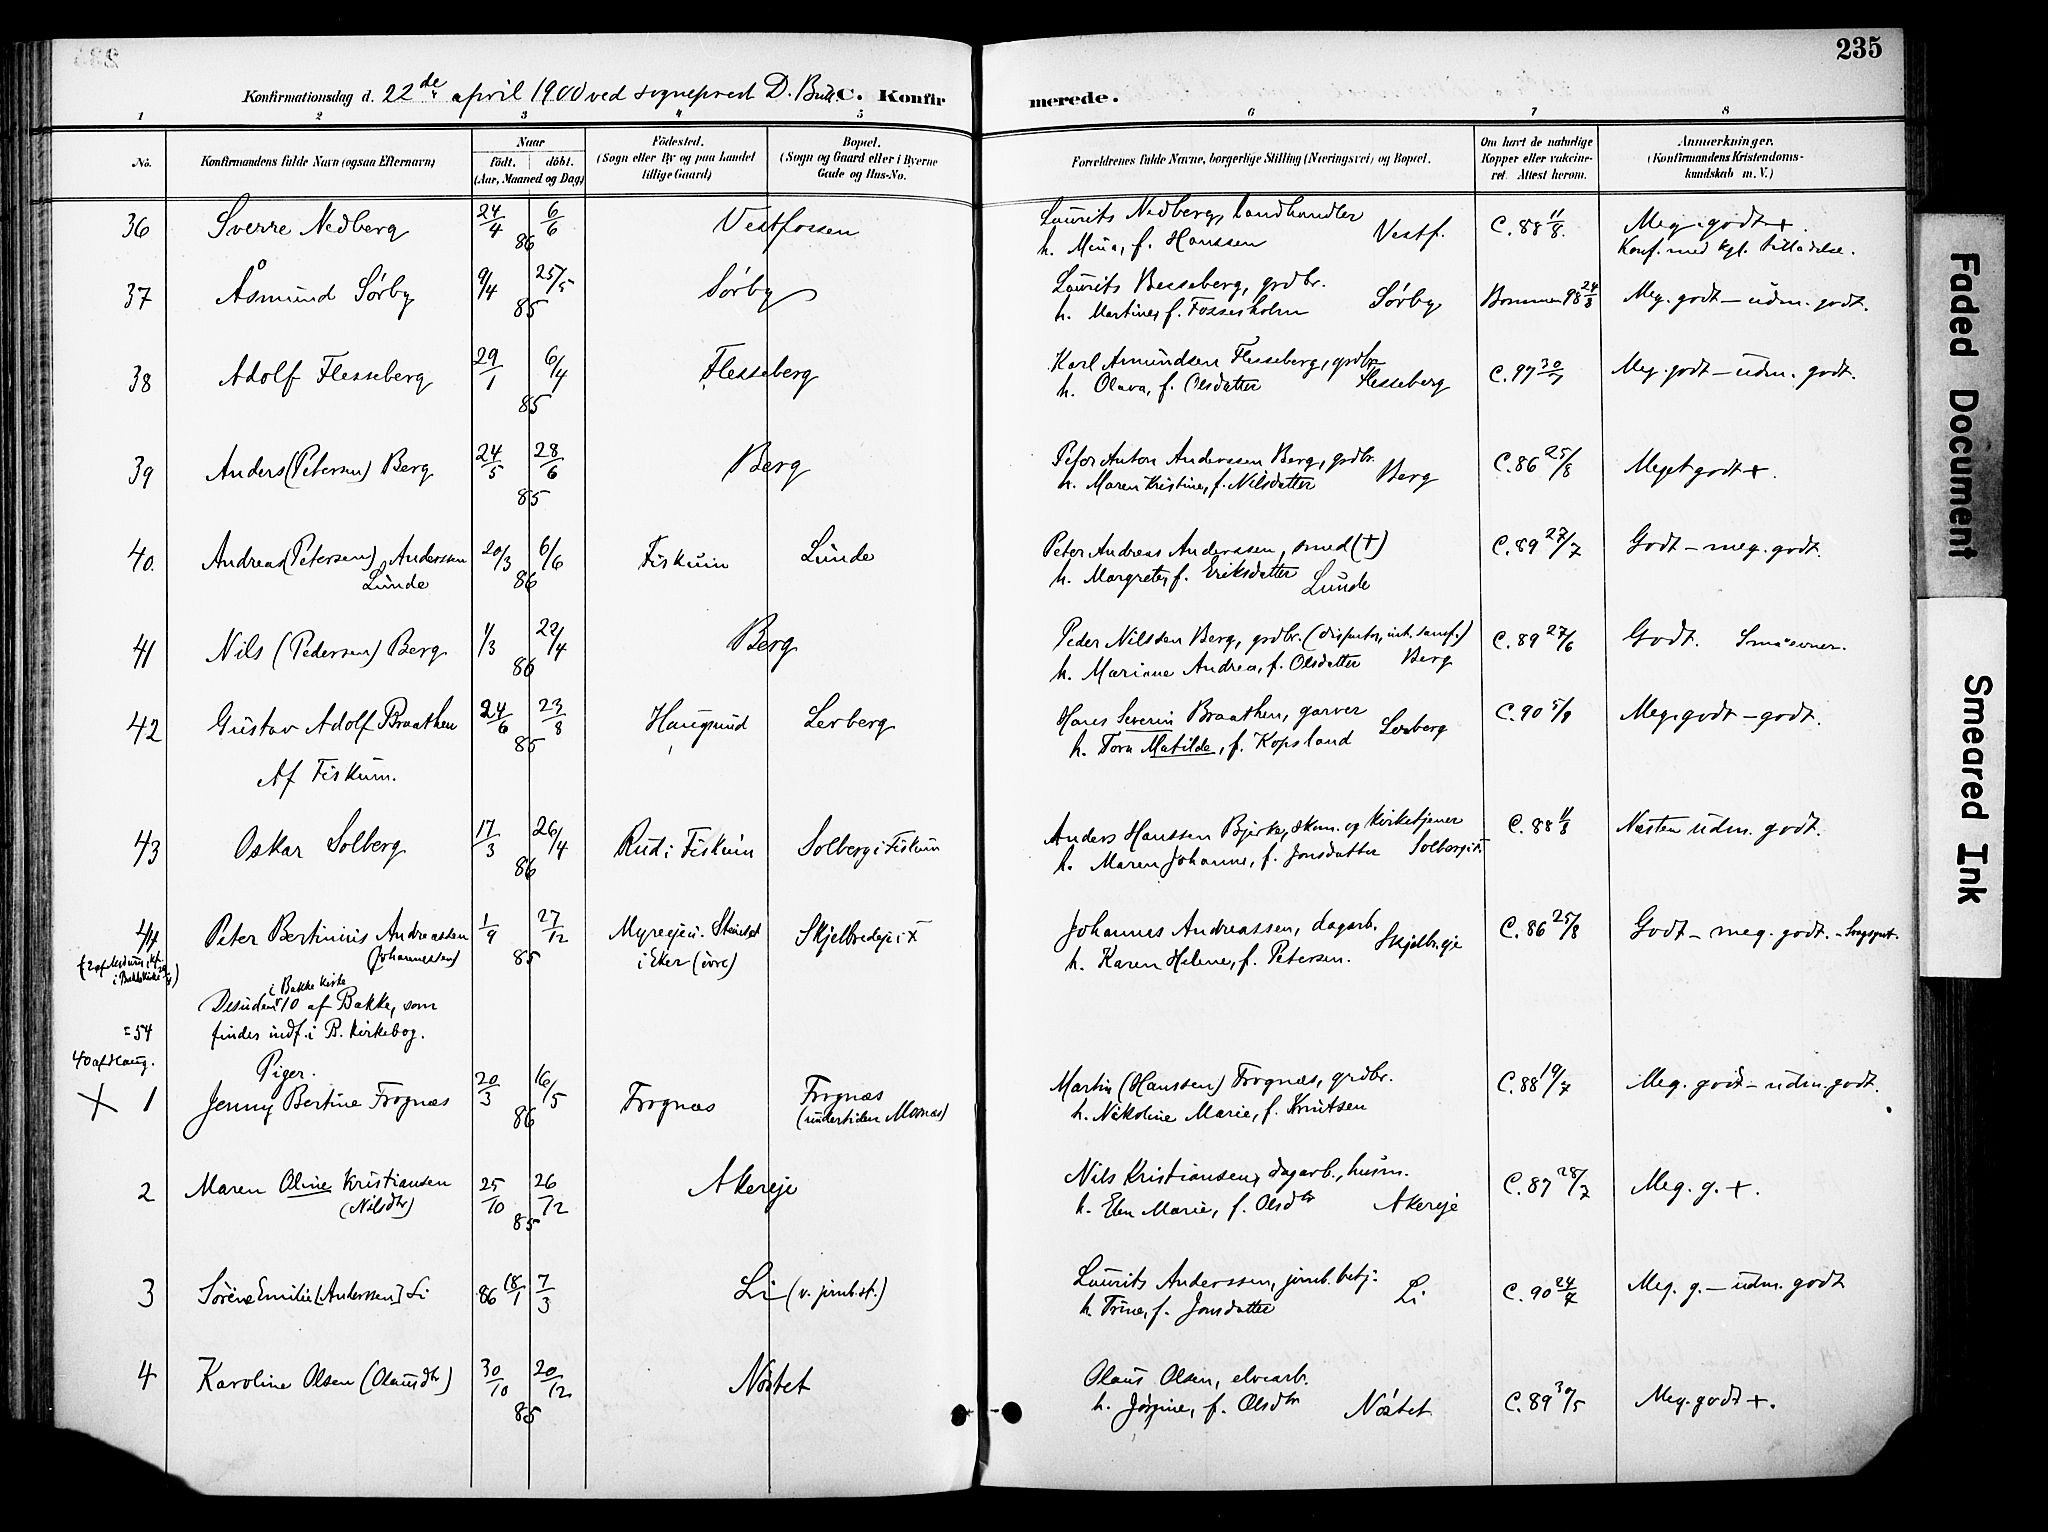 235
Konfirmationsdag d. 22de april 1900 ved sogneprest D. C. Konfirmerede.
1 2 3 4 5 6 7 8
No.
Konfirmandens fulde Navn (ogsaa Efternavn)
Naar
födt. döbt.
(Aar, Maaned og Dag)
Födested.
(Sogn eller By og paa Landet
tillige Gaard)
Bopæl.
(Sogn og Gaard eller i Byerne
Gade og Hus-No.
Forældrenes fulde Navne, borgerlige Stilling (Næringsvei) og Bopæl.
Om havt de naturlige
Kopper eller vaccine-
ret. Attest herom.
Anmærkninger.
(Konfirmandens Kristendoms-
kundskab m. V.)
36 Sverre Nedberg 24/4 6/6 86 Vestfossen Laurits Nedberg, landhandler Vestf. C. 88 11/8. Meg. godt +.
h. Mina, f. Hanssen Konf. med kgl. tilladelse.
37 Åsmund Sørby 9/4 25/5 85 Sørby Laurits Besseberg, grdbr. Sørby 98 24/8 Meg. godt – udm. godt.
h. Martine, f. Fossesholm
38 Adolf Flesseberg 29/1 6/4 85 Flesseberg Karl Amundsen Flesseberg, grdbr. C. 97 30/7 Meg. godt – udm. godt.
h. Olava, f. Olsdatter Flesseberg
39 Anders (Petersen) Berg 24/5 28/6 85 Berg Peter Anton Anderssen Berg, grdbr. Berg C. 86 25/8 Meget godt +.
h. Maren Kristine, f. Nilsdatter
40. Andreas (Petersen) Anderssen 20/3 6/6 86 Fiskum Lunde Peter Andreas Anderssen, smed (†) C. 89 27/7 Godt – meg. godt.
Lunde h. Margrete, f. Eriksdatter Lunde
41 Nils (Pedersen) Berg 1/3 22/4 86 Berg Peder Nilssen Berg, grdbr. C. 89 27/6 Godt.
h. Mariane Andrea, f. Olsdatter Berg
42 Gustav Adolf Braathen 24/6 23/8 85 Haugsund Lerberg Hans Severin Braathen, garver Lerberg C. 90 5/9 Meg. godt – godt.
h. Tora Matilde, f. Kopsland
Af Fiskum.
43 Oskar Solberg 17/3 26/4 86 Rud i Fiskum Solberg i Fiskum Anders Hanssen Bjerke, skom. og kirketjener C. 88 11/8 Næsten udm. godt.
h. Maren Johanne, f. Jonsdatter
44 Peter Bertinius Andreassen 1/9 27/12 85 Skjelbredeje i F Johannes Andreassen, dagarb. Skjelbr.eje C. 86 25/8 Godt – meg. godt.
(Johannessen) i Eker (øvre) h. Karen Helene, f. Petersen.
i Bakke kirke
Desuden 10 af Bakke, som
findes indf. i B. kirkebog.
= 54
40 af Haug.
Piger.
1 Jenny Bertine Frognæs 20/3 16/5 86 Frognæs Frognæs Martin (Hanssen) Frognæs, grdbr. C. 88 19/7 Meg. godt – udm. godt.
h. Nikoline Marie, f. Knutsen
2 Maren Oline Kristiansen 25/10 26/12 85 Akereje Nils Kristiansen, dagarb., husm. C. 87 28/7 Meg. g. +.
(Nilsdtr) h. Elen Marie, f. Olsdtr Akereje
3 Sørine Emilie [Anderssen] Li 86 18/1 7/3 Li (v. jernb.st.) Laurits Anderssen, jernb. betj. Li C. 90 24/4 Meg. g. – udm. godt
h. Trine, f. Jonsdatter
4 Karoline Olsen (Olausdtr) 30/10 20/12 85 Nøstet Olaus Olsen, elvearb. C. 89 30/5 Meg. godt +.
h. Jørgine, f. Olsdtr Nøstet
Faded Document
Smeared Ink